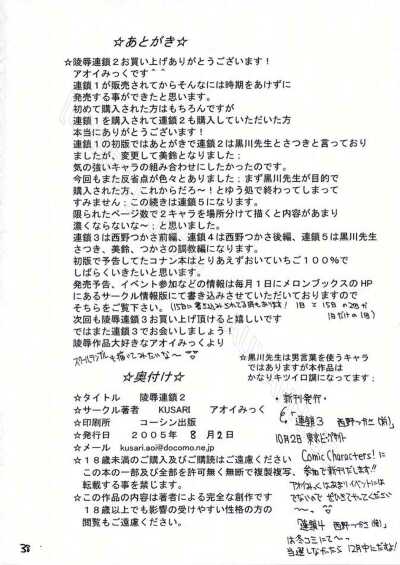 ☆あとがき☆
☆陵辱連鎖２お買い上げありがとうございます！
アオイみっくです＾＾
連鎖１が販売されてからそんなには時期をあけずに
発売する事ができたと思います。
初めて購入された方はもちろんですが
連鎖１を購入されて連鎖２も購入していただいた方
本当にありがとうございます！
連鎖１の初版ではあとがきで連鎖２は黒川先生とさつきと言っており
ましたが、変更して美鈴となりました；
気の強いキャラの組み合わせにしたかったのです。
今回もまた反省点が色々とありました；まず黒川先生が目的で
購入された方、これからだろ～！とゆう処で終わってしまって
すみません；この続きは連鎖５になります。
限られたページ数で２キャラを場所分けて描くと内容があまり
濃くならないな～；と思いました。
連鎖３は西野つかさ前編、連鎖４は西野つかさ後編、連鎖５は黒川先生
さつき、美鈴、つかさの調教編になります。
初版で予告してたコナン本はとりあえずおいていちご１００％で
しばらくいきたいと思います。
発売予告、イベント参加などの情報は毎月１日にメロンブックスのHP
にあるサークル情報版にて書き込みさせていただいておりますので
そちらをご覧下さい。
次回も陵辱連鎖３お買い上げ頂けると嬉しいです
ではまた連鎖３でお会いしましょう！
陵辱作品大好きなアオイみっくより
スクールランブルも描いてみたいな～
☆黒川先生は男言葉を使うキャラ
ではありますが本作品は
かなりキツイロ調になってます；
☆奥付け☆
☆タイトル　陵辱連鎖２
☆サークル著者　KUSARI　アオイみっく
☆印刷所　コーシン出版
☆発行日　２００５年　８月２日
☆メール　kusari.aoi@docomo.ne.jp
☆１８歳未満のご購入及びご購読はご遠慮ください
この本の一部及び全部を許可無く無断で複製複写、
転載する事を禁じます。
☆この作品の内容は著者による完全な創作です
１８歳以上でも影響の受けやすい性格の方の
閲覧もご遠慮ください。
・新刊発行・
「連鎖３　西野つかさ（前）」
10月2日 東京ビッグサイト
Comic Characters！に
参加で新刊だします!!
「連鎖４　西野つかさ（後）」
は冬コミにて～
当選しなかったら12月中にだすよ！
38